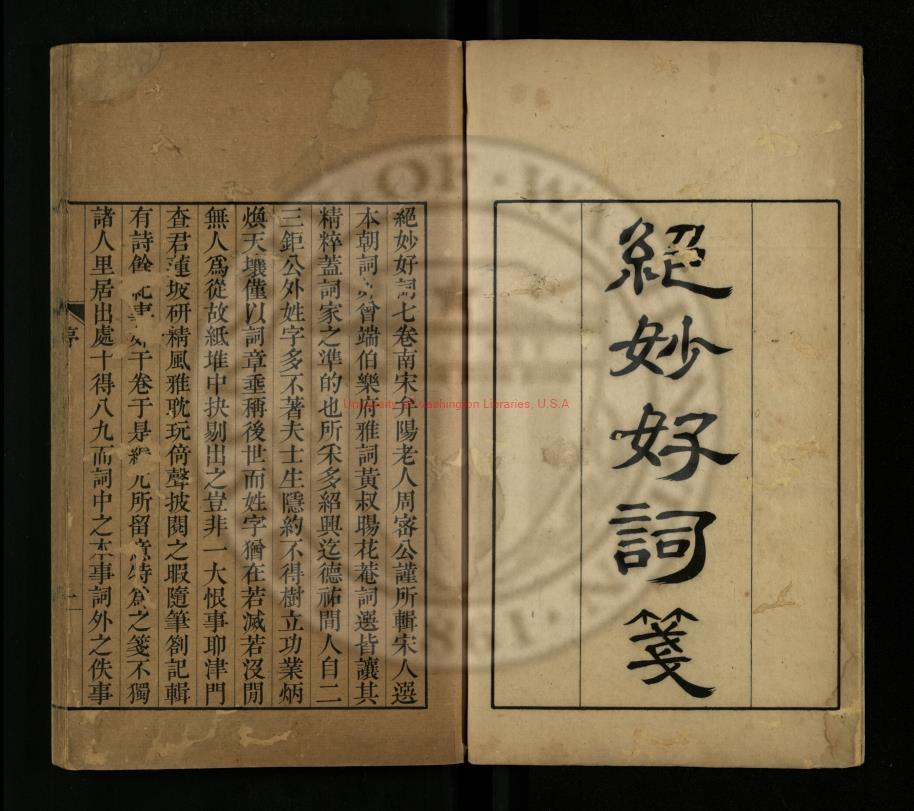 絕妙好詞箋
絕妙好詞七卷南宋弁陽老人周密公謹所輯宋人選
本朝詞如曾端伯樂府雅詞黃叔暘花菴詞選皆讓其
精粹蓋詞家之準的也所采多紹興迄德祐間人自二
三鉅公外姓字多不著夫士生隱約不得樹立功業炳
煥天壤僅以詞章垂稱後世而姓字猶在若滅若沒閒
無人爲從故紙堆中抉剔出之豈非一大恨事耶津門
查君蓮坡研精風雅耽玩倚聲披閱之暇隨筆劄記輯
有詩餘紀事如干卷于是編尤所留意特爲之箋不獨
諸人里居出處十得八九而詞中之本事詞外之佚事
序
一
University of Washington Libraries, U.S.A